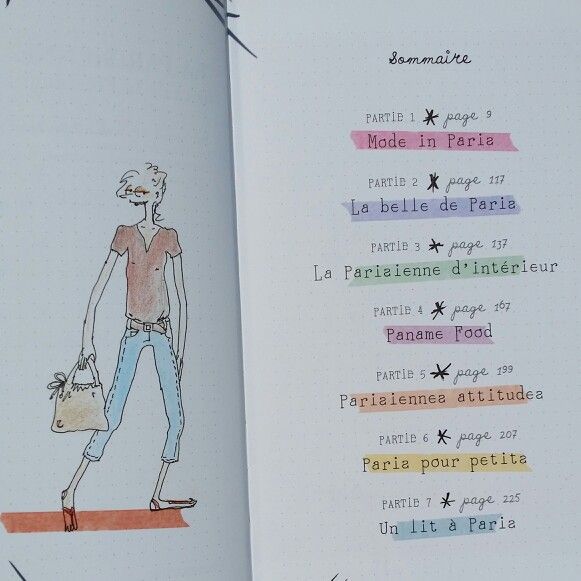 Sommaire
PARTIE 1 * page 9
Mode in Paris
PARTIE 2 * page 117
La belle de Paris
PARTIE 3 * page 137
La Parisienne d'intérieur
PARTIE 4 * page 167
Paname Food
PARTIE 5 * page 199
Parisiennes attitudes
PARTIE 6 * page 207
Paris pour petits
PARTIE 7 * page 225
Un lit à Paris